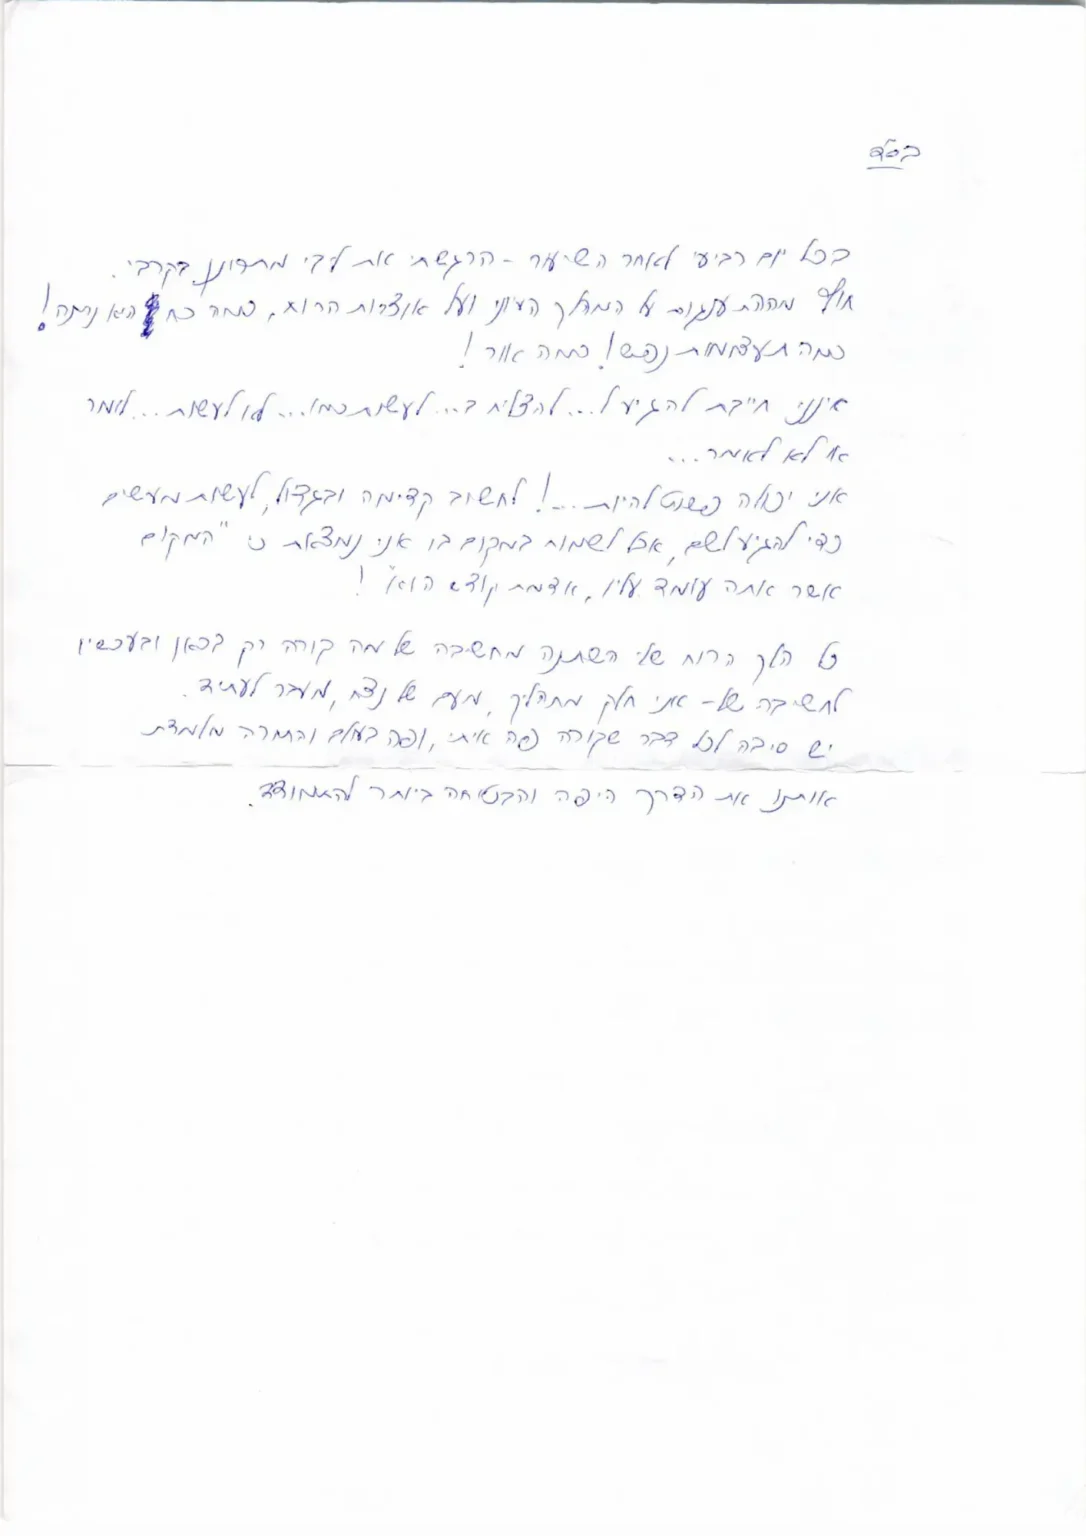 בס"ד
בכל יום רביעי לאחר השיעור - הרגשתי את ליבי מתרונן בקרבי.
חוץ מההתענגות על המהלך העיוני ועל אוצרות הרוח, כמה כח היא נתנה!
כמה תעצומות נפש! כמה אור!
אינני חייבת להגיע ל... להצליח ב... לעשות כמו... לא לעשות... לומר
או לא לאמר...
אני יכולה פשוט להיות...! לחשוב קדימה ובגדול, לעשות מעשים
כדי להגיע לשם, אבל לשמוח במקום בו אני נמצאת כי "המקום
אשר אתה עומד עליו, אדמת קודש הוא"!
כל הלך הרוח שלי השתנה מחשיבה של מה קורה רק בכאן ובעכשיו
לחשיבה של - אני חלק מתהליך, מעם של נצח, מעבר לעתיד.
יש סיבה לכל דבר שקורה פה איתי, ופה בעולם והתורה מלמדת
אותנו את הדרך היפה והבטוחה ביותר להתמודד.